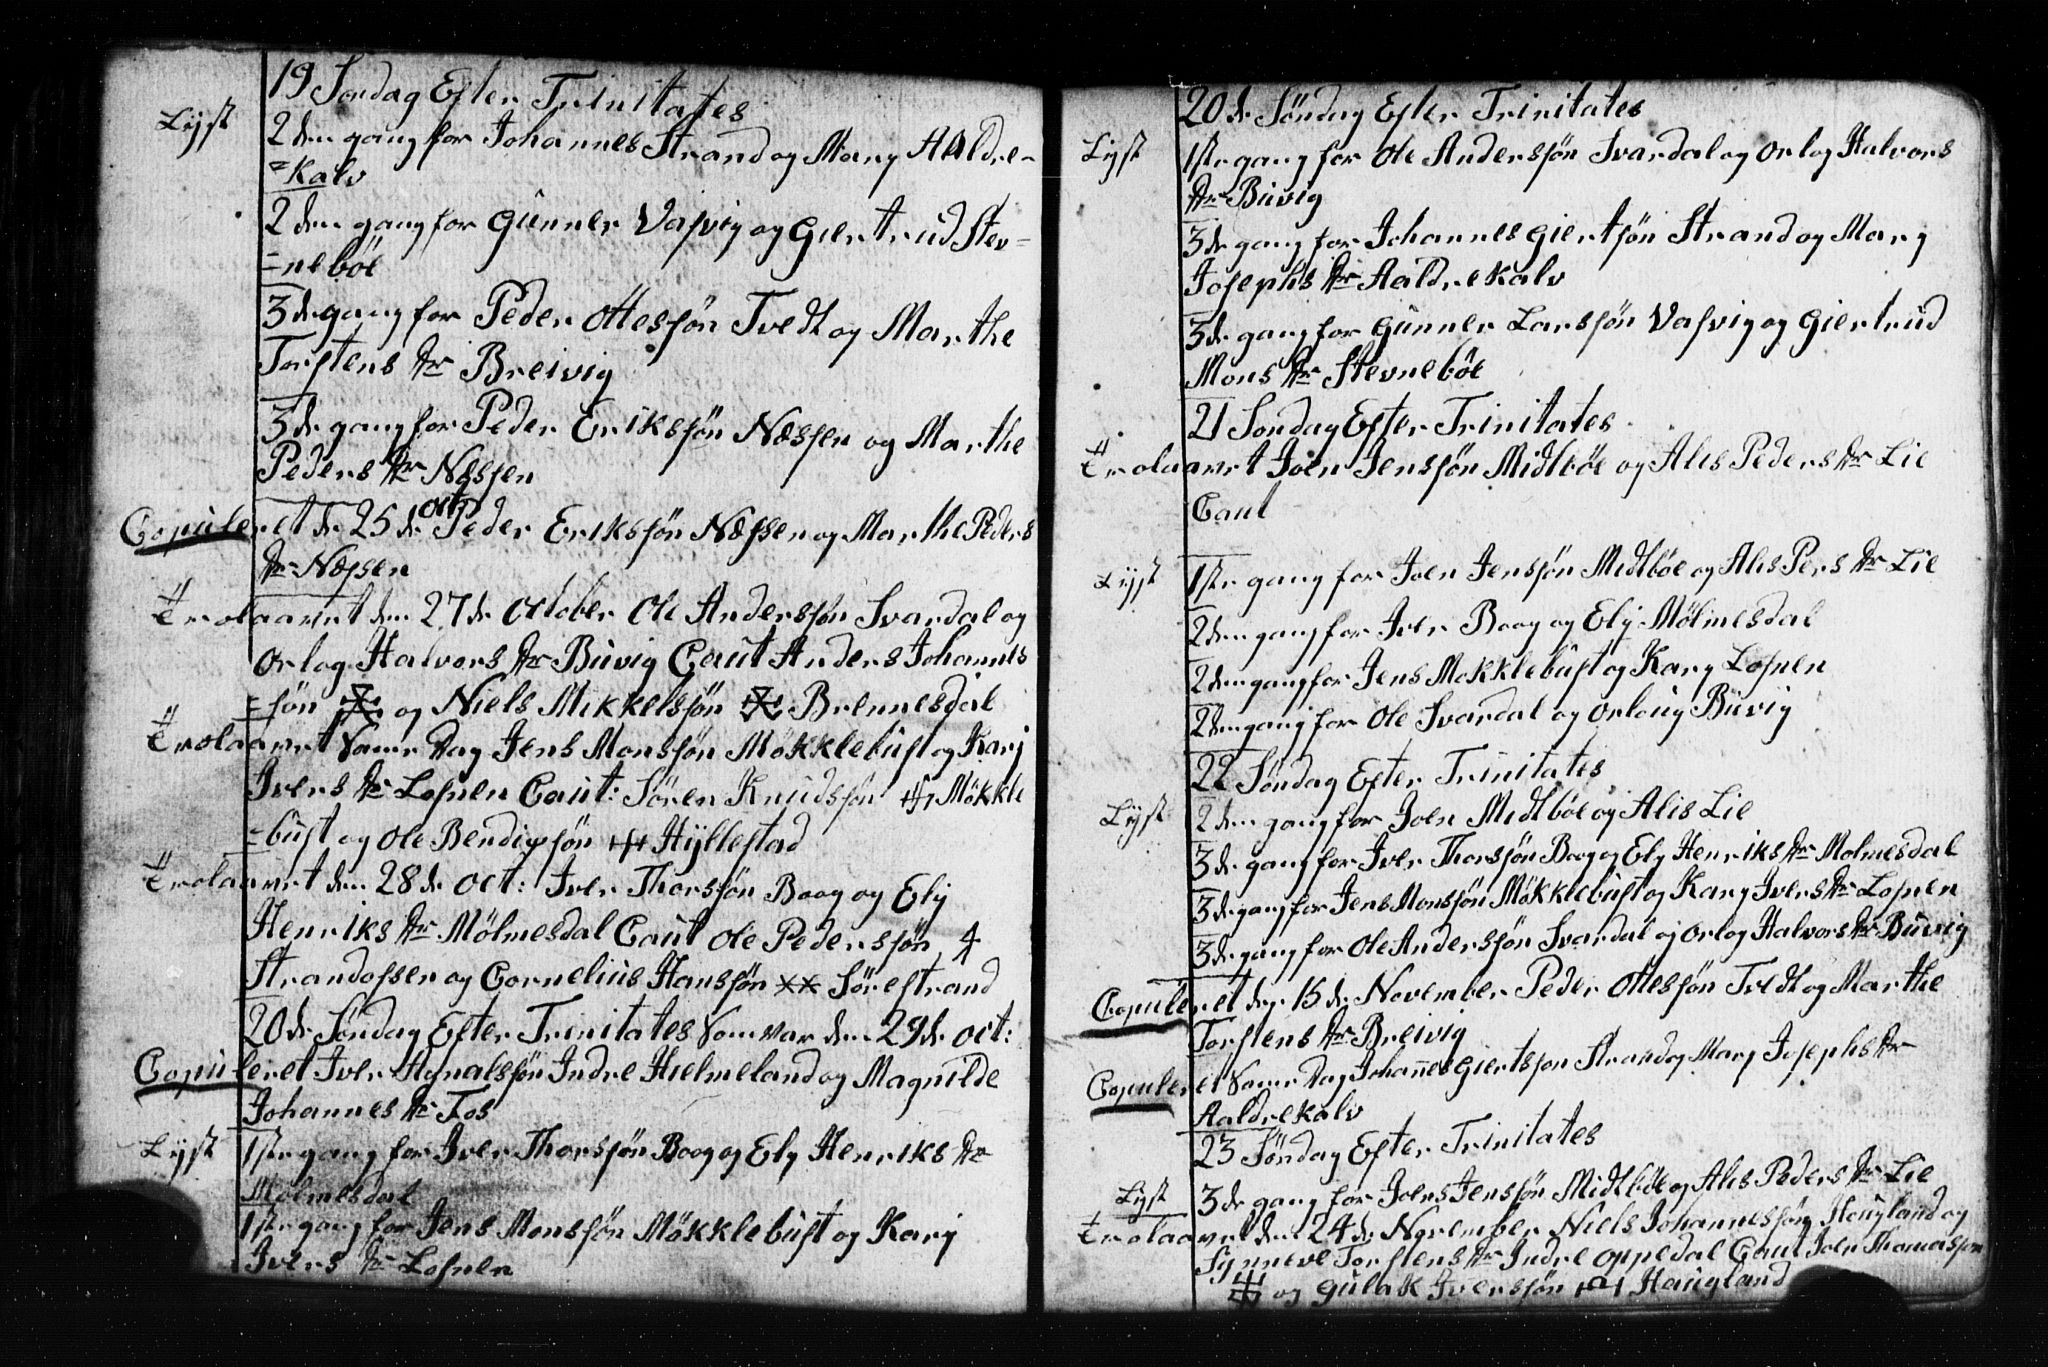 19 Søndag Efter Trinitates
Lyst 2den gang for Johannes Strand og Mary Aaldre=
=kalv
2den gang for Gunner Vasvig og Giertrud Stev=
=nebøe
3de gang for Peder Ottessøn Tvedt og Marthe
Torstens Dr Breivig
3de gang for Peder Erikssøn Næssen og Marthe
Peders Dr Næssen
Copuleret de 25de oct Peder Erikssøn Næssen og Marthe Peders
Dr Næssen
Trolaavet den 27de October Ole Anderssøn Svardal og
Orlog Halvors Dr Buvig Caut Anders Johannes
=søn og Niels Mikkelssøn Brennesdal
Trolaavet Same Dag Jens Monssøn Møkklebust og Kary
Ivers Dr Losnen Caut: Søren Knudssøn Møkkle
=bust og Ole Bendixsøn Hyllestad
Trolaavet den 28de Oct: Iver Thorssøn Boog og Ely
Henriks Dr Mølmesdal Caut Ole Pederssøn
Strandossen og Cornelius Hanssøn Sørestrand
20de Søndag Efter Trinitates Som var den 29de Oct:
Copuleret Iver Indre Hielmeland og Magnilde
Johannes Dr Fos
Lyst 1ste gang for Iver Thorssøn Boog og Ely Henriks Dr
Mølmesdal
1ste gang for Jens Monssøn Møkklebust og Kary
Ivers Dr Losnen
20de Søndag Efter Trinitates
Lyst 1ste gang for Ole Anderssøn Svardal og Orlog Halvors
Dr Buvig
3de gang for Johannes Giertsøn Strand og Mary
Josephs Dr Aaldrekalv
3de gang for Gunner Larssøn Vasvig og Giertrud
Mons Dr Stevnebøe
21 Søndag Efter Trinitates
Trolaavet Joen Jenssøn Midtbøe og Alis Peders Dr Lie
Caut
Lyst 1ste gang for Joen Jenssøn Midtbøe og Alis Pers Dr Lie
2den gang for Iver Boog og Ely Mølmesdal
2den gang for Jens Mokklebust og Kary Losnen
2den gang for Ole Svardal og Orloug Buvig
22 Søndag Efter Trinitates
Lyst 2den gang for Joen Midtbøe og Alis Lie
3de gang for Iver Thorssøn Boog og Ely Henriks Dr Molmesdal
3de gang for Jens Monssøn Møkklebust og Kary Ivers Dr Losnen
3de gang for Ole Anderssøn Svardal og Orlog Halvors Dr Buvig
Copuleret den 15de November Peder Ottessøn Tvedt og Marthe
Torstens Dr Breivig
Copuleret Same Dag Johannes Giertsson Strand og Mary Josephs Dr
Aaldrekalv
23 Søndag Efter Trinitates
Lyst 3de gang for Joen Jenssøn Midtbøe og Alis Peders Dr Lie
Trolaavet den 24de November Niels Johannessøn Hougland og
Synneve Torstens Dr Indre Oppedal Caut Joen Thomassøn
og Gulak Iverssøn Haugland